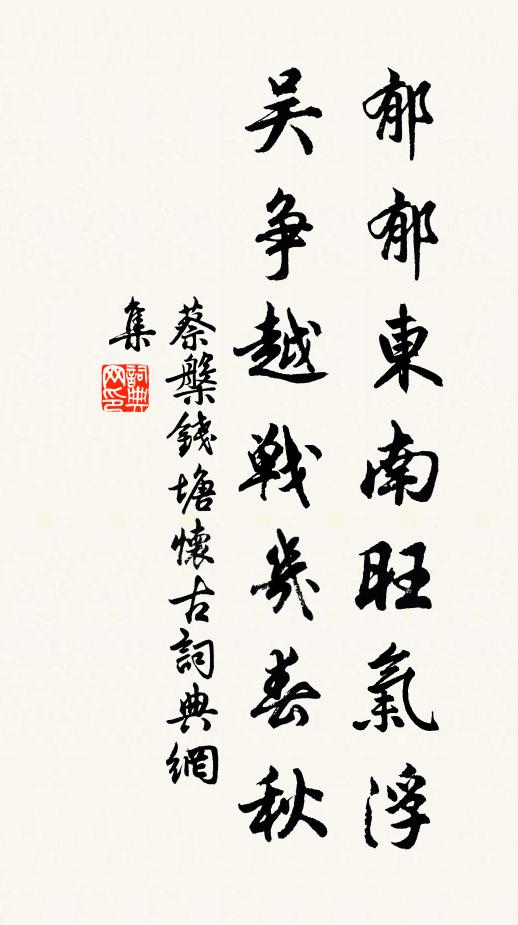 郁郁東南旺氣浮
吴争越戰幾春秋
蔡槃錢塘懷古詞典網
集
詞典
网印